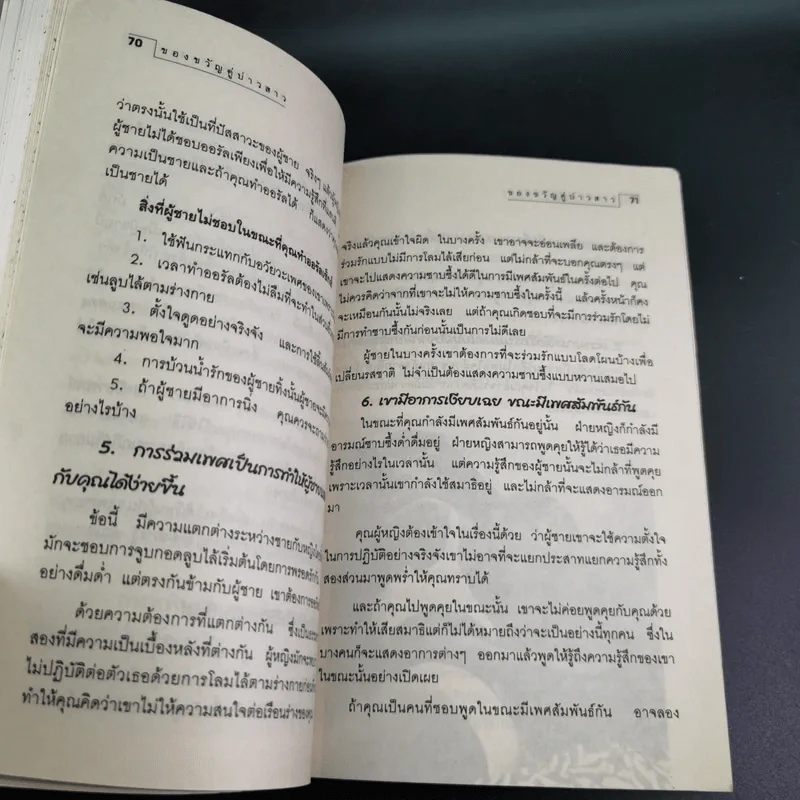 70 ของขวัญคู่บ่าวสาว
ว่าตรงนั้นใช้เป็นที่ปัสสาวะของผู้ชาย จริงๆ แล้ว
ผู้ชายไม่ได้ชอบออรัลเพียงเพื่อให้มีความรู้สึก
ความเป็นชายและถ้าคุณทำออรัลได้ ก็แสดงว่า
เป็นชายได้
สิ่งที่ผู้ชายไม่ชอบในขณะที่คุณทำออรัล
1. ใช้ฟันกระแทกกับอวัยวะเพศของเขา
2. เวลาทำออรัลต้องไม่ลืมที่จะทำในส่วนอื่น
เช่นลูบไล้ตามร่างกาย
3. ตั้งใจดูดอย่างจริงจัง และการใช้ลิ้น
จะมีความพอใจมาก
4. การบ้วนน้ำรักของผู้ชายทิ้งนั้นผู้ชายจะ
5. ถ้าผู้ชายมีอาการนิ่ง คุณควรจะถาม
อย่างไรบ้าง
5. การร่วมเพศเป็นการทำให้ผู้ชาย
กับคุณได้ง่ายขึ้น
ข้อนี้ มีความแตกต่างระหว่างชายกับหญิง
มักจะชอบการจูบกอดลูบไล้เริ่มต้นโดยการพรอดรัก
อย่างดื่มด่ำ แต่ตรงกันข้ามกับผู้ชาย เขาต้องการ
ด้วยความต้องการที่แตกต่างกัน ซึ่งเป็น
สองที่มีความเป็นเบื้องหลังที่ต่างกัน ผู้หญิงมักจะ
ไม่ปฏิบัติต่อตัวเธอด้วยการโลมไล้ตามร่างกายก่อน
ทำให้คุณคิดว่าเขาไม่ให้ความสนใจต่อเรือนร่างของคุณ
ของขวัญคู่บ่าวสาว 71
จริงแล้วคุณเข้าใจผิด ในบางครั้ง เขาอาจจะอ่อนเพลีย และต้องการ
ร่วมรักแบบไม่มีการโลมไล้เสียก่อน แต่ไม่กล้าที่จะบอกคุณตรงๆ แต่
เขาจะไปแสดงความซาบซึ้งได้ดีในการมีเพศสัมพันธ์ในครั้งต่อไป คุณ
ไม่ควรคิดว่าจากที่เขาจะไม่ให้ความซาบซึ้งในครั้งนี้ แล้วครั้งหน้าก็คง
จะเหมือนกันนั้นไม่จริงเลย แต่ถ้าคุณเกิดชอบที่จะมีการร่วมรักโดยไม่
มีการทำซาบซึ้งกันก่อนนั้นเป็นการไม่ดีเลย
ผู้ชายในบางครั้งเขาต้องการที่จะร่วมรักแบบโลดโผนบ้างเพื่อ
เปลี่ยนรสชาติ ไม่จำเป็นต้องแสดงความซาบซึ้งแบบหวานเสมอไป
6. เขามีอาการเงียบเฉย ขณะมีเพศสัมพันธ์กัน
ในขณะที่คุณกำลังมีเพศสัมพันธ์กันอยู่นั้น ฝ่ายหญิงก็กำลังมี
อารมณ์ซาบซึ้งด่ำดื่มอยู่ ฝ่ายหญิงสามารถพูดคุยให้รู้ได้ว่าเธอมีความ
รู้สึกอย่างไรในเวลานั้น แต่ความรู้สึกของผู้ชายนั้นจะไม่กล้าที่พูดคุย
เพราะเวลานั้นเขากำลังใช้สมาธิอยู่ และไม่กล้าที่จะแสดงอารมณ์ออก
มา
คุณผู้หญิงต้องเข้าใจในเรื่องนี้ด้วย ว่าผู้ชายเขาจะใช้ความตั้งใจ
ในการปฏิบัติอย่างจริงจังเขาไม่อาจที่จะแยกประสาทแยกความรู้สึกทั้ง
สองส่วนมาพูดพร่ำให้คุณทราบได้
และถ้าคุณไปพูดคุยในขณะนั้น เขาจะไม่ค่อยพูดคุยกับคุณด้วย
เพราะทำให้เสียสมาธิแต่ก็ไม่ได้หมายถึงว่าจะเป็นอย่างนี้ทุกคน ซึ่งใน
บางคนก็จะแสดงอาการต่างๆ ออกมาแล้วพูดให้รู้ถึงความรู้สึกของเขา
ในขณะนั้นอย่างเปิดเผย
ถ้าคุณเป็นคนที่ชอบพูดในขณะมีเพศสัมพันธ์กัน อาจลอง